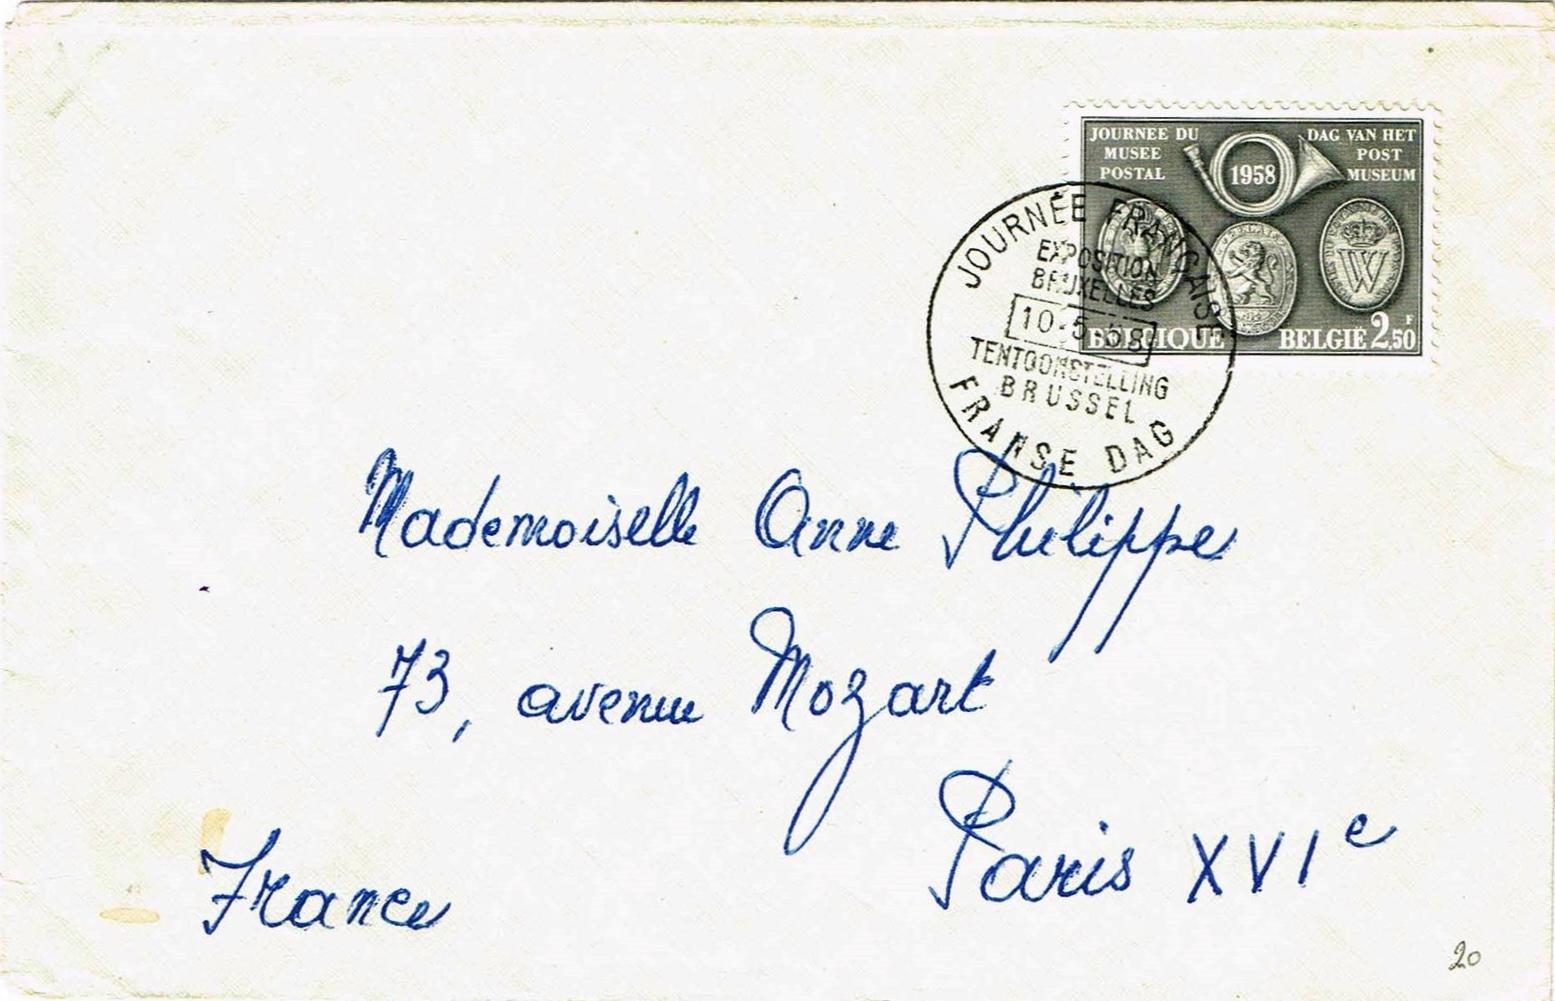 JOURNEE DU
MUSEE
POSTAL
DAG VAN HET
POST
MUSEUM
1958
W
BELGIQUE BELGIË 2,50 F
JOURNÉE FRANÇAISE
EXPOSITION
BRUXELLES
10-5-58
TENTOONSTELLING
BRUSSEL
FRANSE DAG
Mademoiselle Anne Philippe
73, avenue Mozart
Paris XVIe
France
20